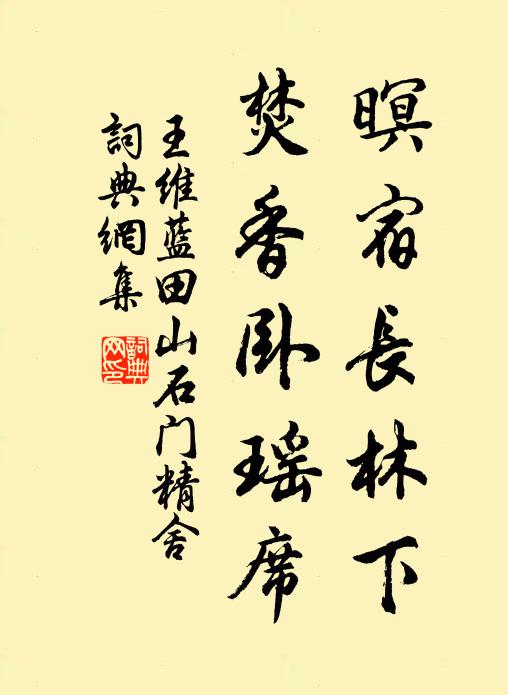 暝宿長林下
焚香卧瑶席
王维蓝田山石门精舍
詞典網集
詞典网印